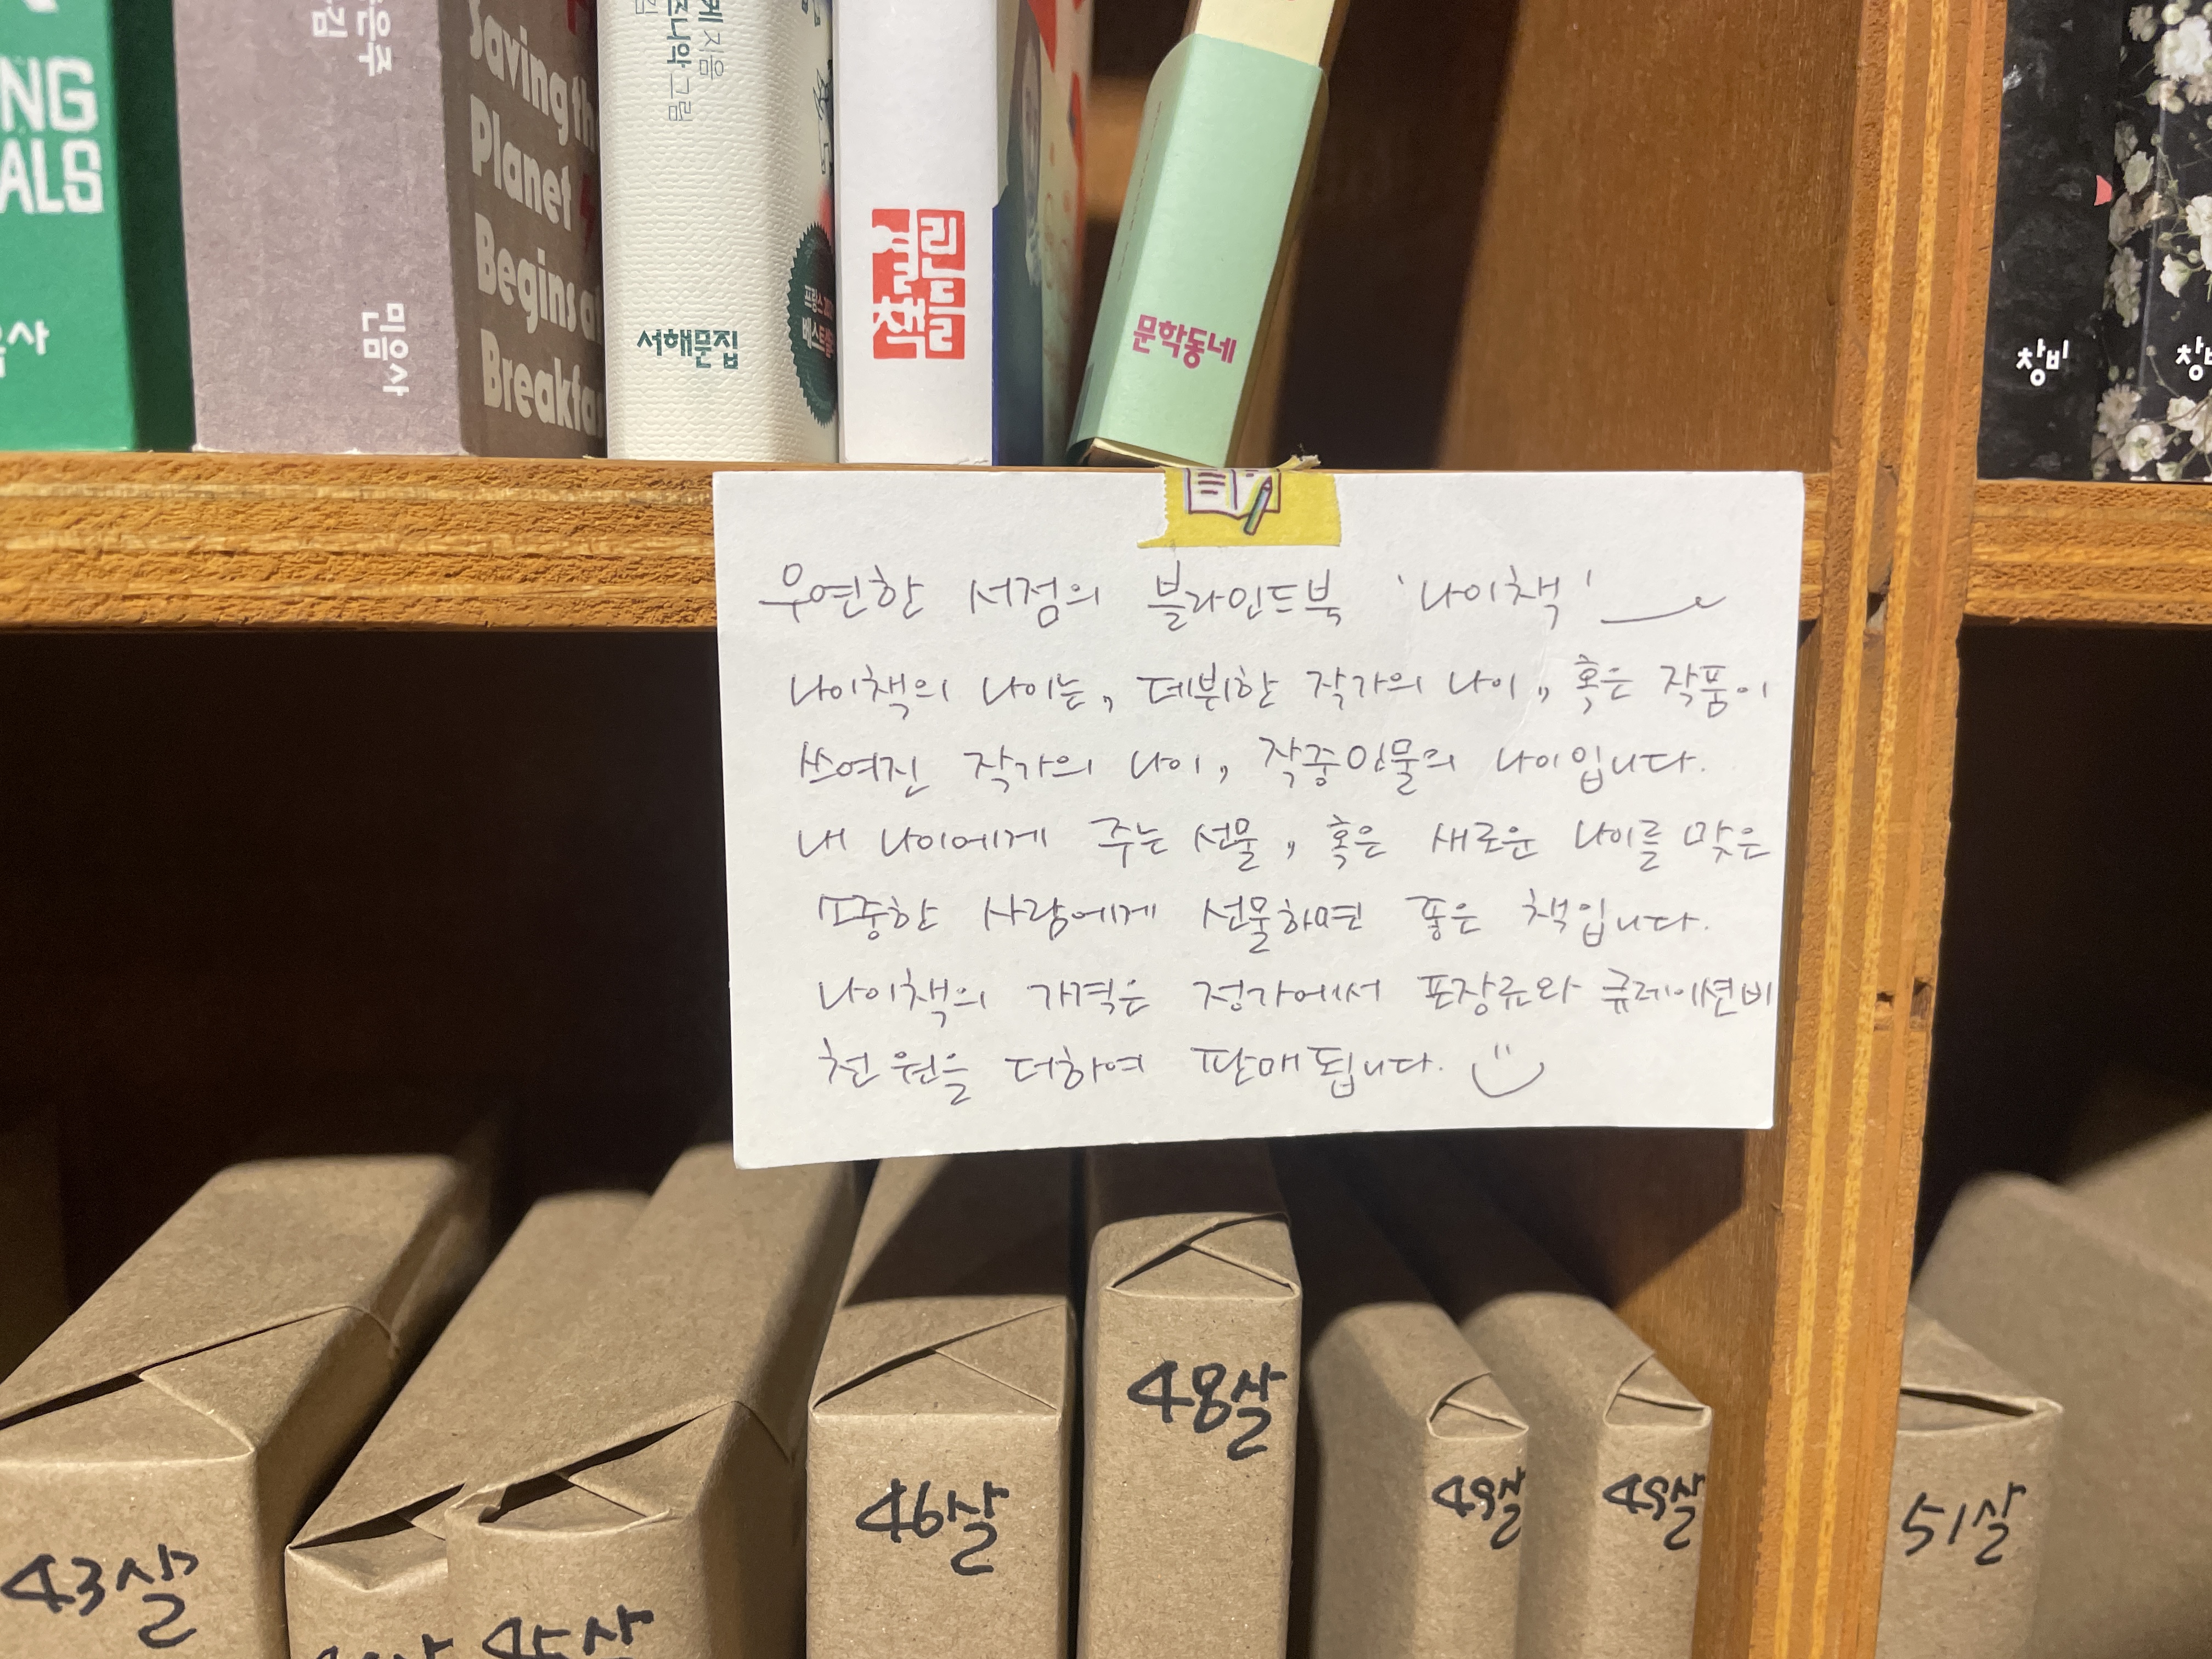 NG
ALS
민음사
Saving th
Planet
Begins a
Breakfa
지음
그림
서해문집
프랑스
린틴틴
책
문학동네
창비
창비
우연한 서점의 블라인드북 '나이책'
나이책의 나이는, 데뷔한 작가의 나이, 혹은 작품이
쓰여진 작가의 나이, 작중인물의 나이입니다.
내 나이에게 주는 선물, 혹은 새로운 나이를 맞은
소중한 사람에게 선물하면 좋은 책입니다.
나이책의 가격은 정가에서 포장료와 큐레이션비
천원을 더하여 판매됩니다.
43살
45살
46살
48살
49살
49살
51살